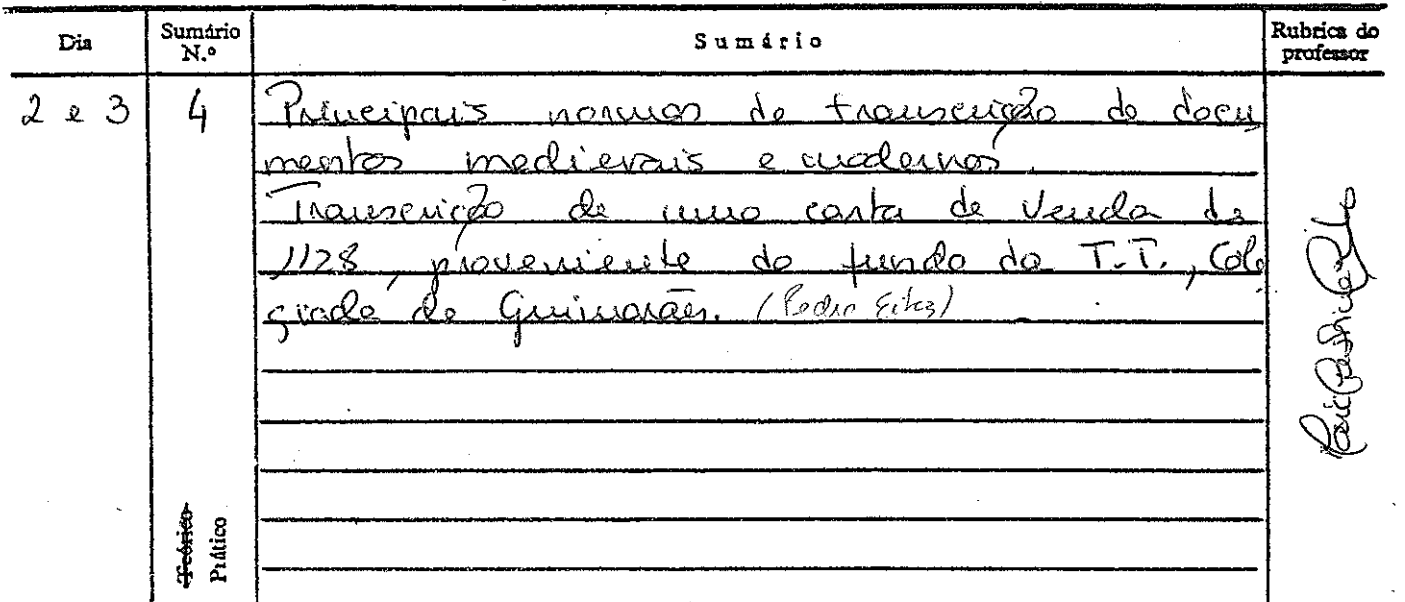 Dia
Sumário N.º
Sumário
Rubrica do professor
2 e 3
4
Principais normas de transcrição de docu
mentos medievais e modernos.
Transcrição de uma carta de venda de
1128, proveniente do fundo da T.T., Cole
giada de Guimarães. (Pedro
Teórico
Prático